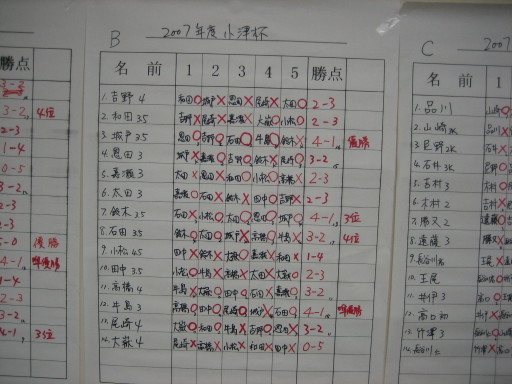 B 2007年度 小津杯
名前 1 2 3 4 5 勝点
1.吉野 4 和田○ 城戸× 恩田× 尾崎× 太田○ 2-3
2.和田 35 吉野× 尾崎× 嘉瀬× 大嶽○ 小松○ 2-3
3.城戸 35 恩田○ 吉野○ 石田○ 牛島○ 鈴木× 4-1 優勝
4.恩田 3 城戸× 嘉瀬○ 吉野○ 鈴木× 尾崎○ 3-2
5.嘉瀬 3 太田× 恩田× 和田○ 小松○ 高橋× 2-3
6.太田 3 嘉瀬○ 石田× 鈴木× 田中○ 吉野× 2-3
7.鈴木 35 石田× 小松○ 太田○ 恩田○ 城戸○ 4-1 3位
8.石田 35 鈴木○ 太田○ 城戸× 高橋○ 牛島× 3-2 4位
9.小松 45 田中× 鈴木× 大嶽○ 嘉瀬× 和田× 1-4
10.田中 35 小松○ 牛島× 高橋× 太田× 大嶽○ 2-3
11.高橋 4 牛島× 大嶽○ 田中○ 石田× 嘉瀬○ 3-2
12.牛島 3 高橋○ 田中○ 尾崎○ 城戸× 石田○ 4-1 準優勝
13.尾崎 4 大嶽○ 和田○ 牛島× 吉野○ 恩田× 3-2
14.大嶽 4 尾崎× 高橋× 小松× 和田× 田中× 0-5
勝点
3-2 4位
2-3
1-4
0-5
3-2
2-3
5-0 優勝
4-1 準優勝
1-4
2-3
3-2
2-3
4-1 3位
C 2007
名前 1
1.品川
2.山崎
4.石井
5.吉村 3
6.木村 2
7.勝又 2
8.遠藤 3
9.長谷川
10.王尾
12.高口 初
13.竹澤 3
14.長谷川